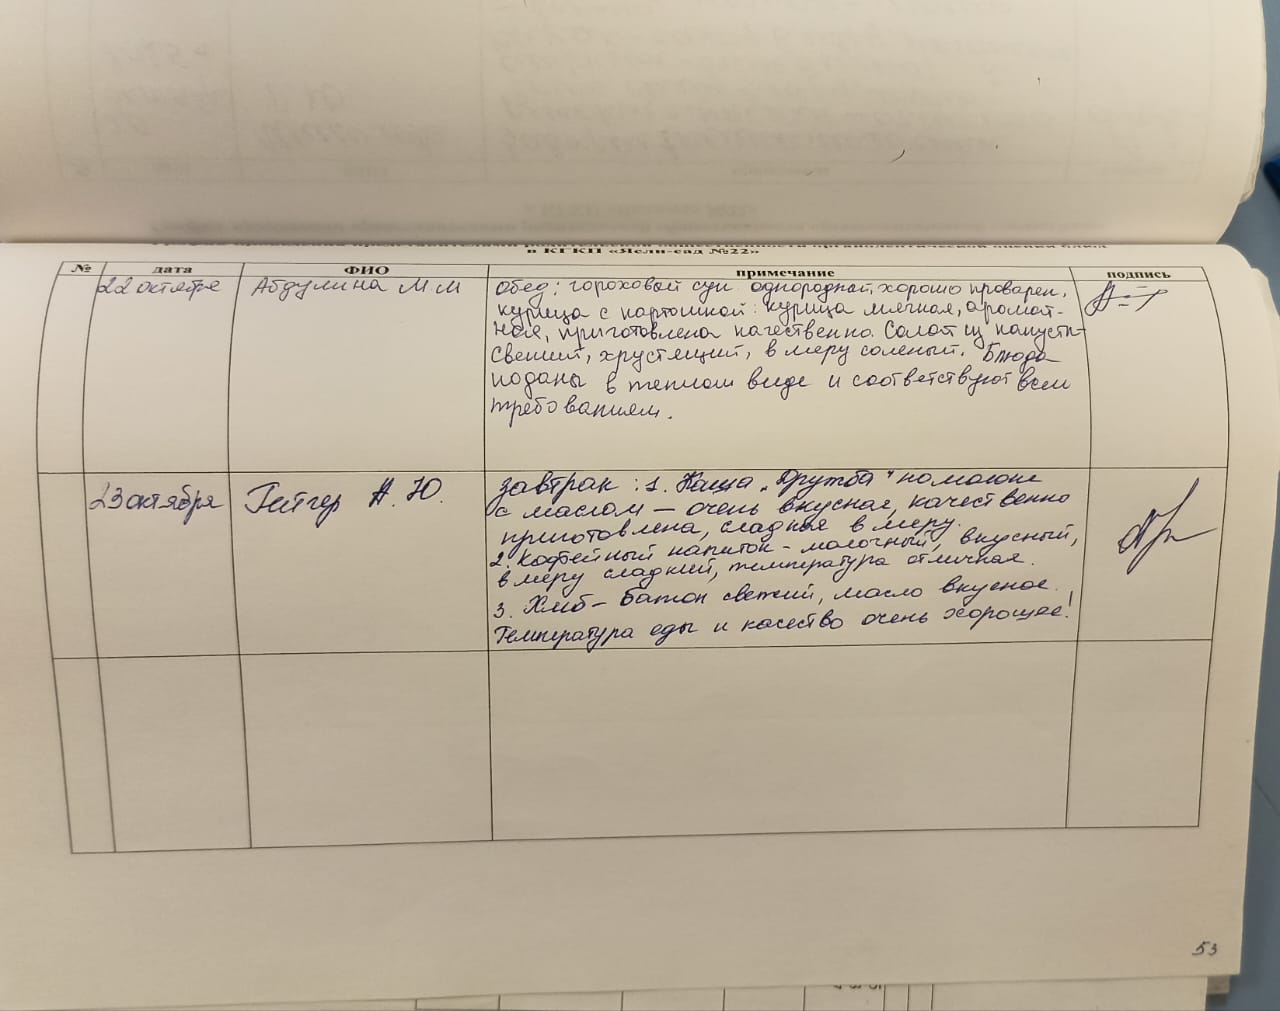 в КГКП «Ясли-сад №22»
№ дата ФИО примечание подпись
22 октября Абдулина М М Обед: гороховый суп однородный, хорошо проварен,
курица с картошкой: курица мягкая, аромат-
ная, приготовлена качественно. Салат из капусты-
свежий, хрустящий, в меру соленый. Блюда
поданы в теплом виде и соответствуют всем
требованиям.
23 октября Гейгер А. Ю. Завтрак: 1. Каша „Дружба" на молоке
с маслом — очень вкусная, качественно
приготовлена, сладкая в меру.
2. Кофейный напиток - молочный, вкусный,
в меру сладкий, температура отличная.
3. Хлеб - батон свежий, масло вкусное.
Температура еды и касество очень хорошее!
53